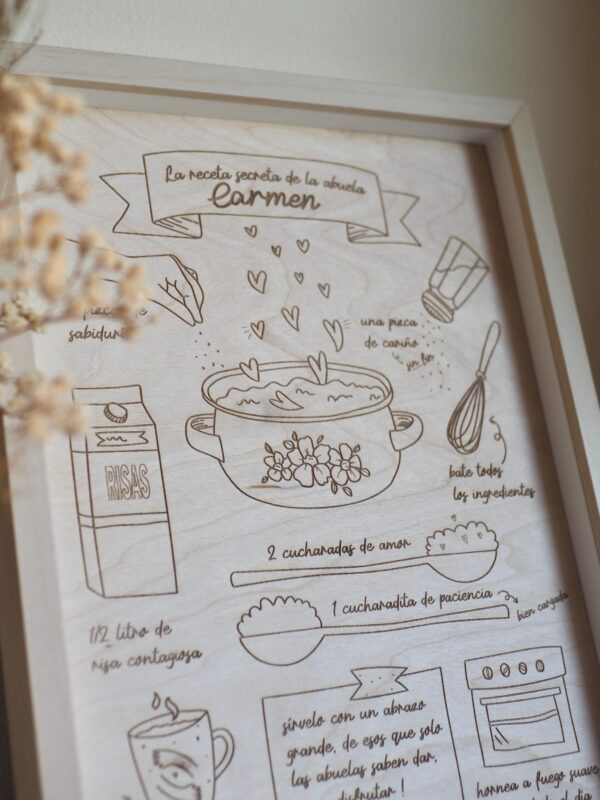 La receta secreta de la abuela
Carmen
sabiduría
una pizca
de cariño
sin fin
RISAS
bate todos
los ingredientes
2 cucharadas de amor
1 cucharadita de paciencia
bien cargada
1/2 litro de
risa contagiosa
sírvelo con un abrazo
grande, de esos que solo
las abuelas saben dar,
disfrutar!
hornea a fuego suave
el dia